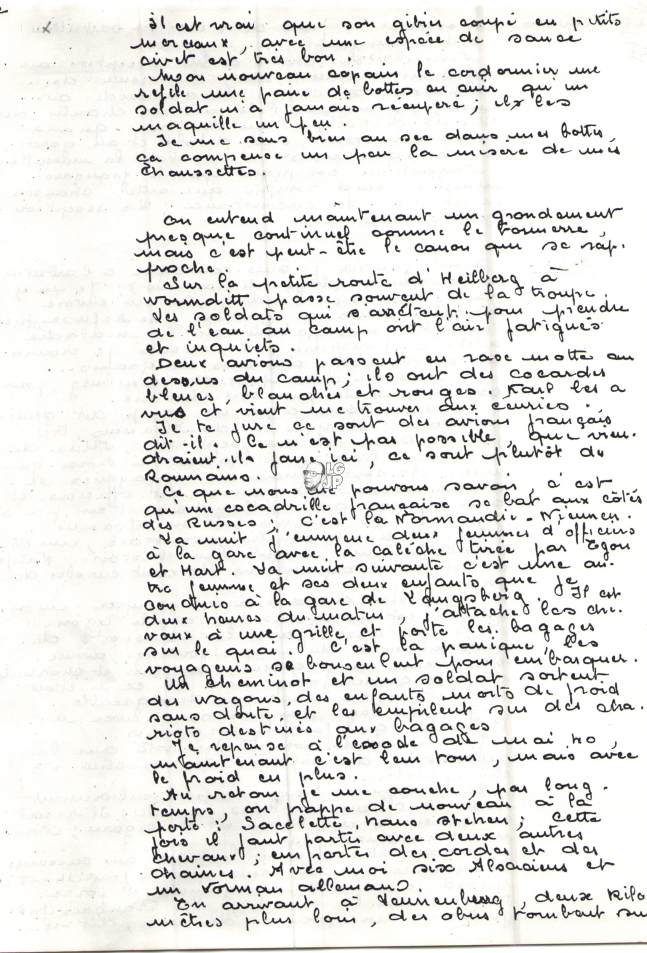 il est vrai que son gibier coupé en petits
morceaux, avec une espèce de sauce
civet est très bon.
Mon nouveau copain le cordonnier me
refile une paire de bottes en cuir qu'un
soldat n'a jamais récupéré ; il les
maquille un peu.
Je me sens bien au sec dans mes bottes,
ça compense un peu la misère de mes
chaussettes.
On entend maintenant un grondement
presque continuel comme le tonnerre,
mais c'est peut-être le canon qui se rap-
proche.
Sur la petite route d'Heilberg à
Wormditt passe souvent de la troupe.
Les soldats qui s'arrêtent pour prendre
de l'eau au camp ont l'air fatigués
et inquiets.
Deux avions passent en rase motte au
dessus du camp ; ils ont des cocardes
bleues, blanches et rouges. Karl les a
vus et vient me trouver aux écuries.
Je te jure ce sont des avions français
dit-il. Ce n'est pas possible, que vien-
draient-ils faire ici, ce sont plutôt des
Roumains.
Ce que nous ne pouvons savoir, c'est
qu'une cocadrille française se bat aux côtés
des Russes ; c'est la Normandie-Niemen.
La nuit j'emmène deux femmes d'officiers
à la gare avec la calèche tirée par Egon
et Hart. La nuit suivante c'est une au-
tre femme et ses deux enfants que je
conduis à la gare de Königsberg. Il est
deux heures du matin, j'attache les che-
vaux à une grille et porte les bagages
sur le quai. C'est la panique, les
voyageurs se bousculent pour embarquer.
Un cheminot et un soldat sortent
des wagons, des enfants morts de froid
sans doute, et les empilent sur des cha-
riots destinés aux bagages.
Je repense à l'exode de mai 40,
maintenant c'est leur tour, mais avec
le froid en plus.
Au retour je me couche, pas long-
temps, on frappe de nouveau à la
porte : Sacelette, raus stehen ; cette
fois il faut partir avec deux autres
chevaux ; emportes des cordes et des
chaines. Avec moi six Alsaciens et
un Vorman allemand.
En arrivant à deux kilo-
mètres plus loin, des obus tombent su
LG
JP